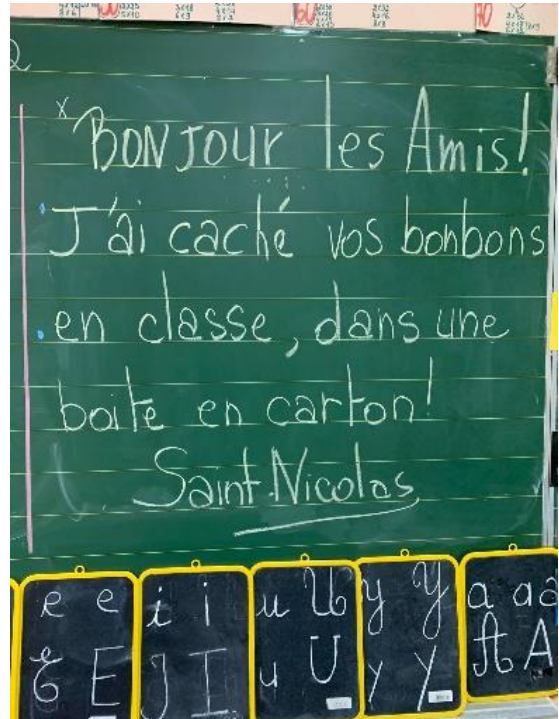 50
60
70
2
x BONJOUR les Amis!
J'ai caché vos bonbons
en classe, dans une
boite en carton!
Saint.Nicolas
e e
E E
i i
I I
u U
u U
y Y
y Y
a a a
A A